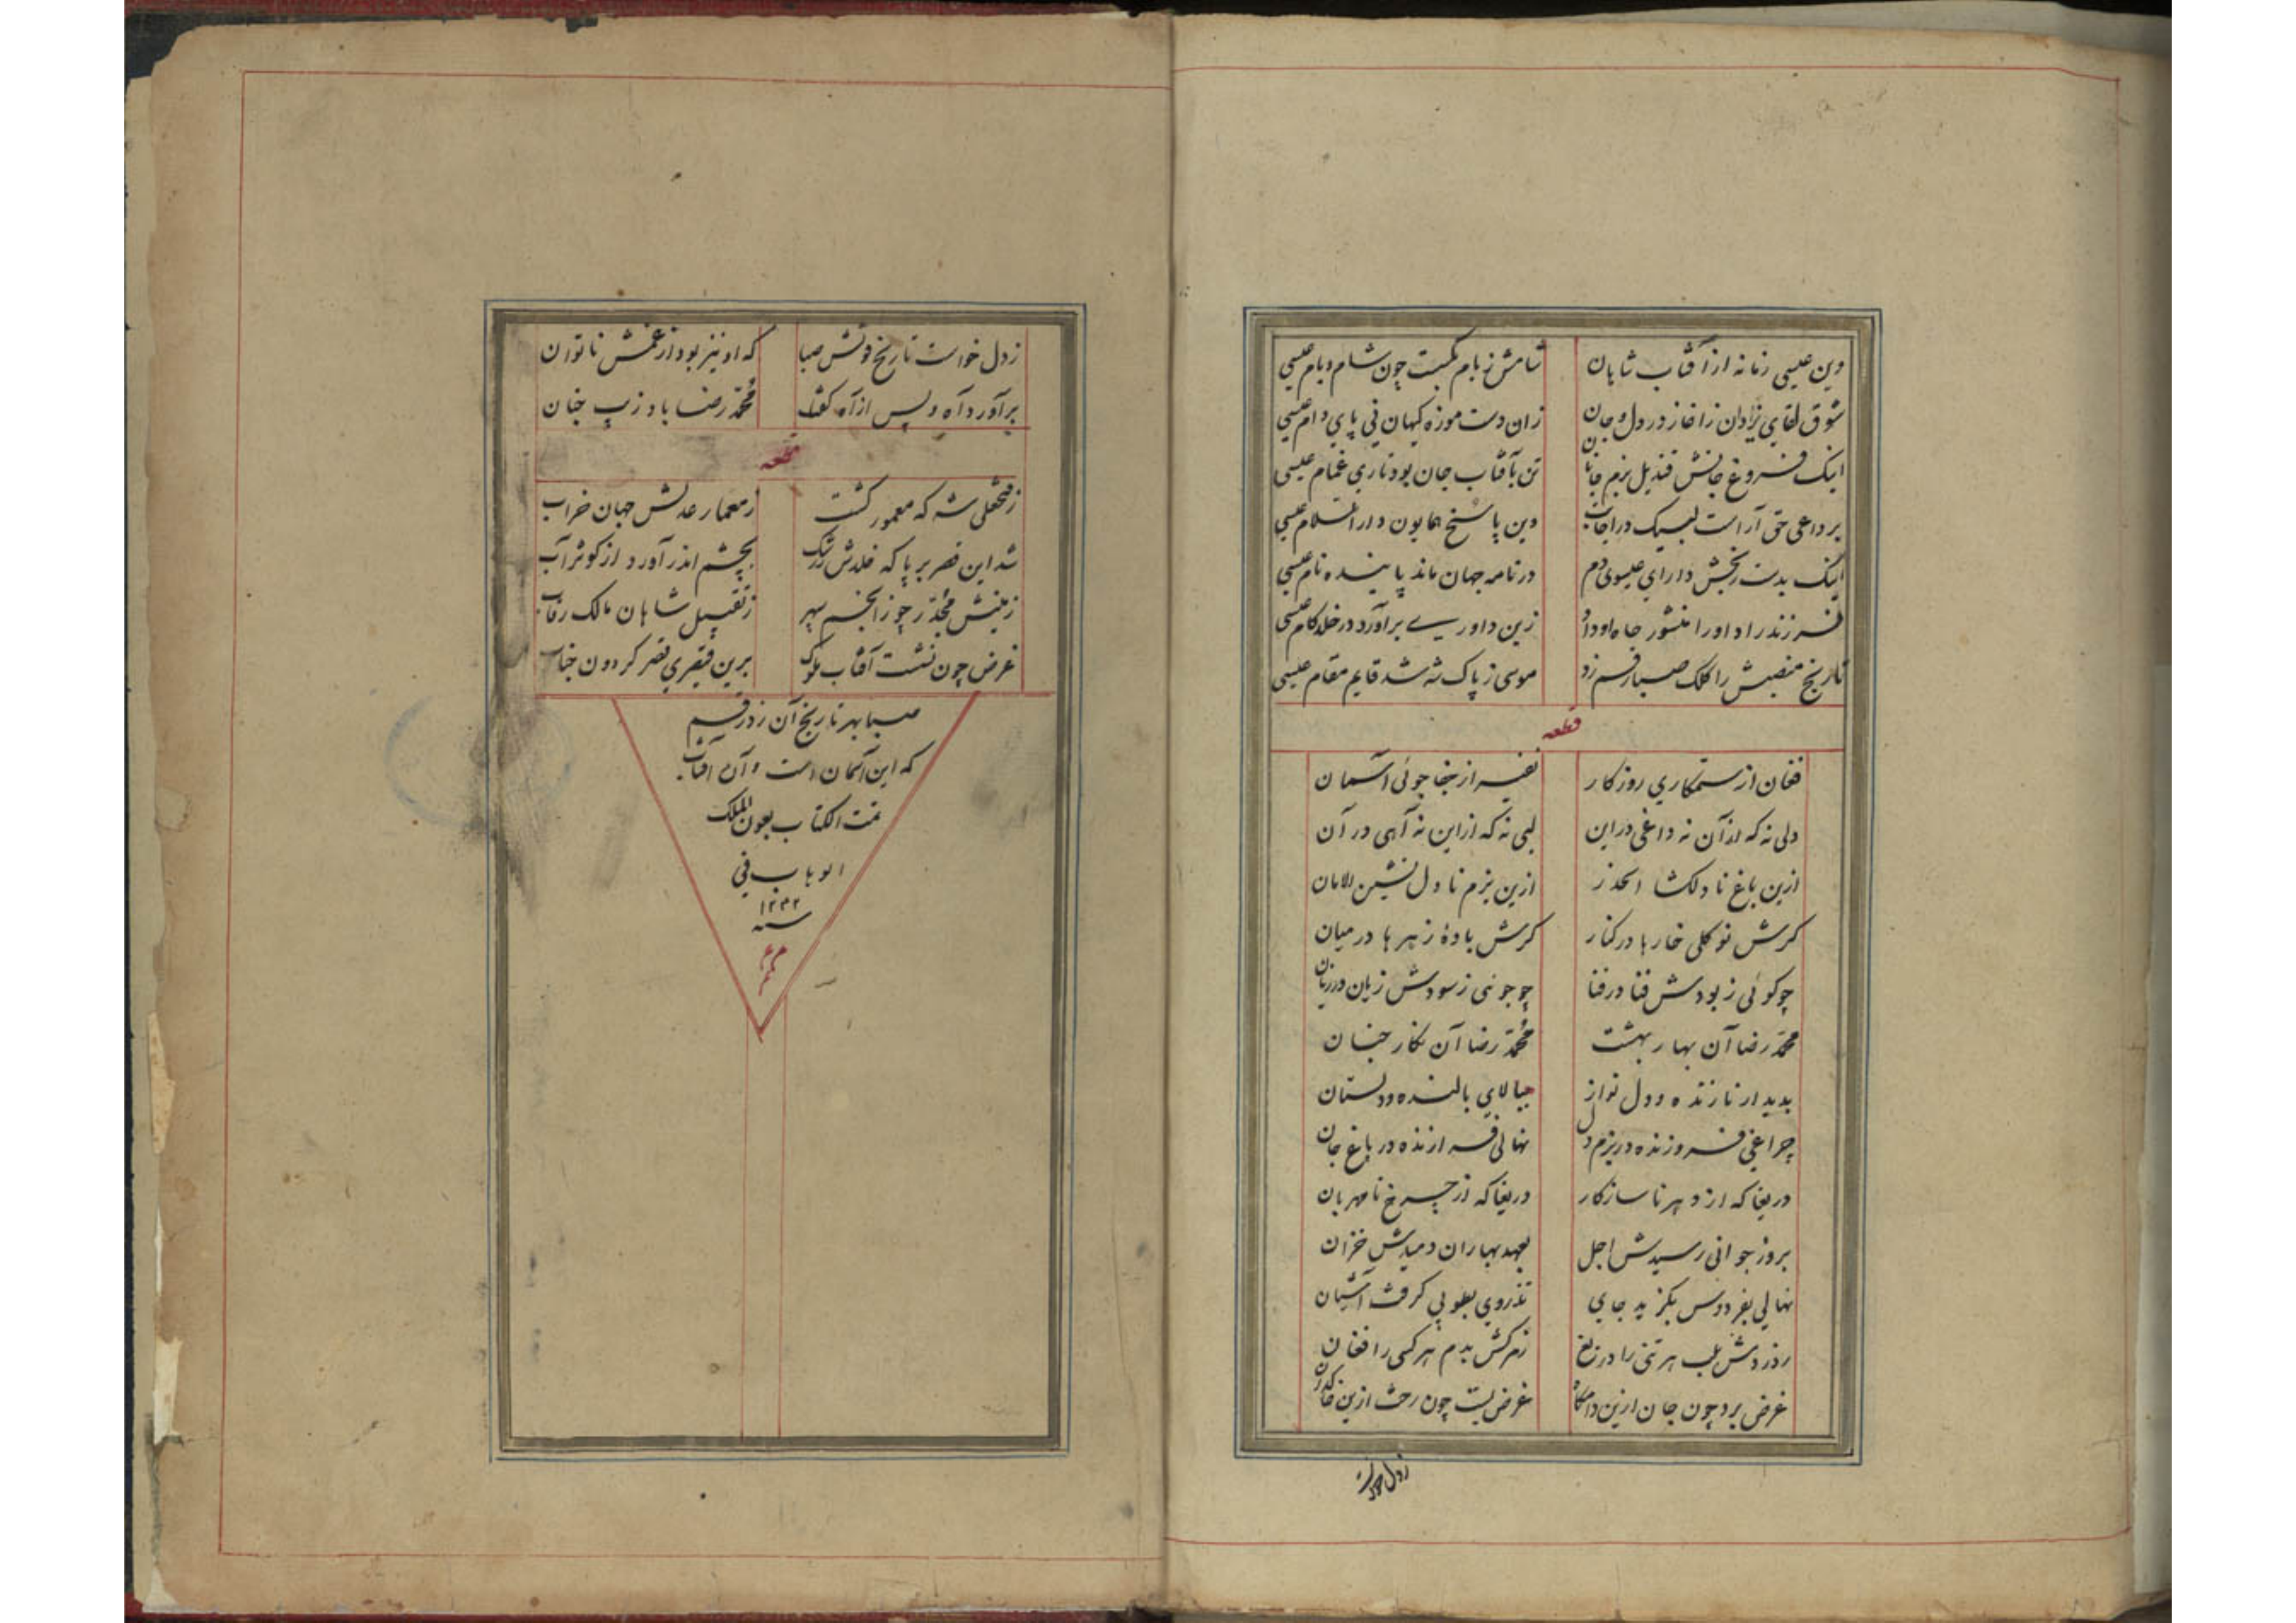 وین عیسی زمانه از آفتاب شایان شامش ز بام گیت چون شام و بام عیسی
شوق لقای یزدان ز آغاز در دل و جان زان دست موزه کیهان نی پای دام عیسی
اینک فروغ جانش قندیل بزم جانان تن بآفتاب جان بود تاری غمام عیسی
بر داعی حق آراست لبیک در اجابت وین پاسخ همایون دار السلام عیسی
لیک بدست بخش دارای عیسوی دم در نامه جهان ماند پاینده نام عیسی
فرزند راد او را منشور جاه او داد زین داوری برآورد در خلد کام عیسی
تاریخ منصبش را کلک صبا رقم زد موسی ز پاک شه شد قایم مقام عیسی
قطعه
فغان از ستمکاری روزکار نفیر از جفا جوئی آسمان
دلی نه که از آن نه داغی در این لبی نه که از این نه آهی در آن
ازین باغ نادلکشا الحذر ازین بزم نا دل نشین الامان
کرش نو کلی خارها در کنار کرش بادهٔ زهرها در میان
چو کوئی ز بودش فنا در فنا چو جوئی ز سودش زیان در زیان
محمد رضا آن بهار بهشت محمد رضا آن نکار جنان
بدیدار نازنده و دل نواز ببالای بالنده و دلستان
چراغی فروزنده در بزم دل نهالی فرازنده در باغ جان
دریغا که از دهر ناسازکار دریغا که از چرخ نامهربان
بروز جوانی رسیدش اجل بعهد بهاران دمیدش خزان
نهالی بفردوس بکزید جای تذروی بطوبی کرفت آشیان
ز دردش بلب هر تنی را دریغ ز مرکش بدم هر کسی را فغان
غرض برد چون جان ازین دامکاه غرض بست چون رخت ازین خاکدان
زدل خواست
ز دل خواست تاریخ فوتش صبا که او نیز بود از غمش ناتوان
برآورد آه و پس از آه کفتا محمد رضا باد زیب جنان
قطعه
ز فتحعلی شه که معمور کشت ز معمار عدلش جهان خراب
شد این قصر بر پا که خلدش ز رشک بچشم اندر آورد از کوثر آب
زمینش مجدر چو ز انجم سپهر ز تقبیل شاهان مالک رقاب
غرض چون نشست آفتاب ملوک برین قیصری قصر کردون جناب
صبا بهر تاریخ آن زد رقم
که این آسمان است و آن آفتاب
تمت الکتاب بعون الملک
الوهاب فی
۱۲۳۲
سنه